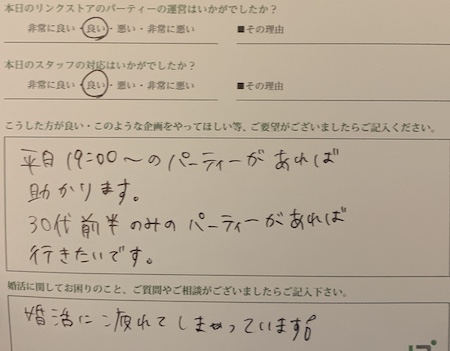 本日のリンクストアのパーティーの運営はいかがでしたか?
非常に良い・良い・悪い・非常に悪い ■その理由
本日のスタッフの対応はいかがでしたか?
非常に良い・良い・悪い・非常に悪い ■その理由
こうした方が良い・このような企画をやってほしい等、ご要望がございましたらご記入ください。
平日19:00〜のパーティーがあれば
助かります。
30代前半のみのパーティーがあれば
行きたいです。
婚活に関してお困りのこと、ご質問やご相談がございましたらご記入下さい。
婚活に疲れてしまっています。